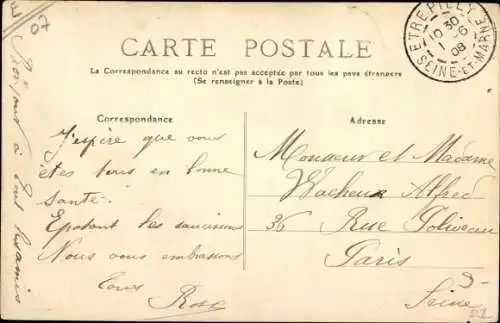 E
07
CARTE POSTALE
La Correspondance au recto n'est pas acceptée par tous les pays étrangers
(Se renseigner à la Poste)
ETREPILLY
10 30
1 - 6
08
SEINE-ET-MARNE
Correspondance
J'espère que vous
êtes tous en bonne
santé.
Epatant les saucissons
Nous vous embrassons
tous
Rose
Bonjour à tous les amis
Adresse
Monsieur et Madame
Wacheux Alfred
36 Rue Poliveau
Paris
5
Seine